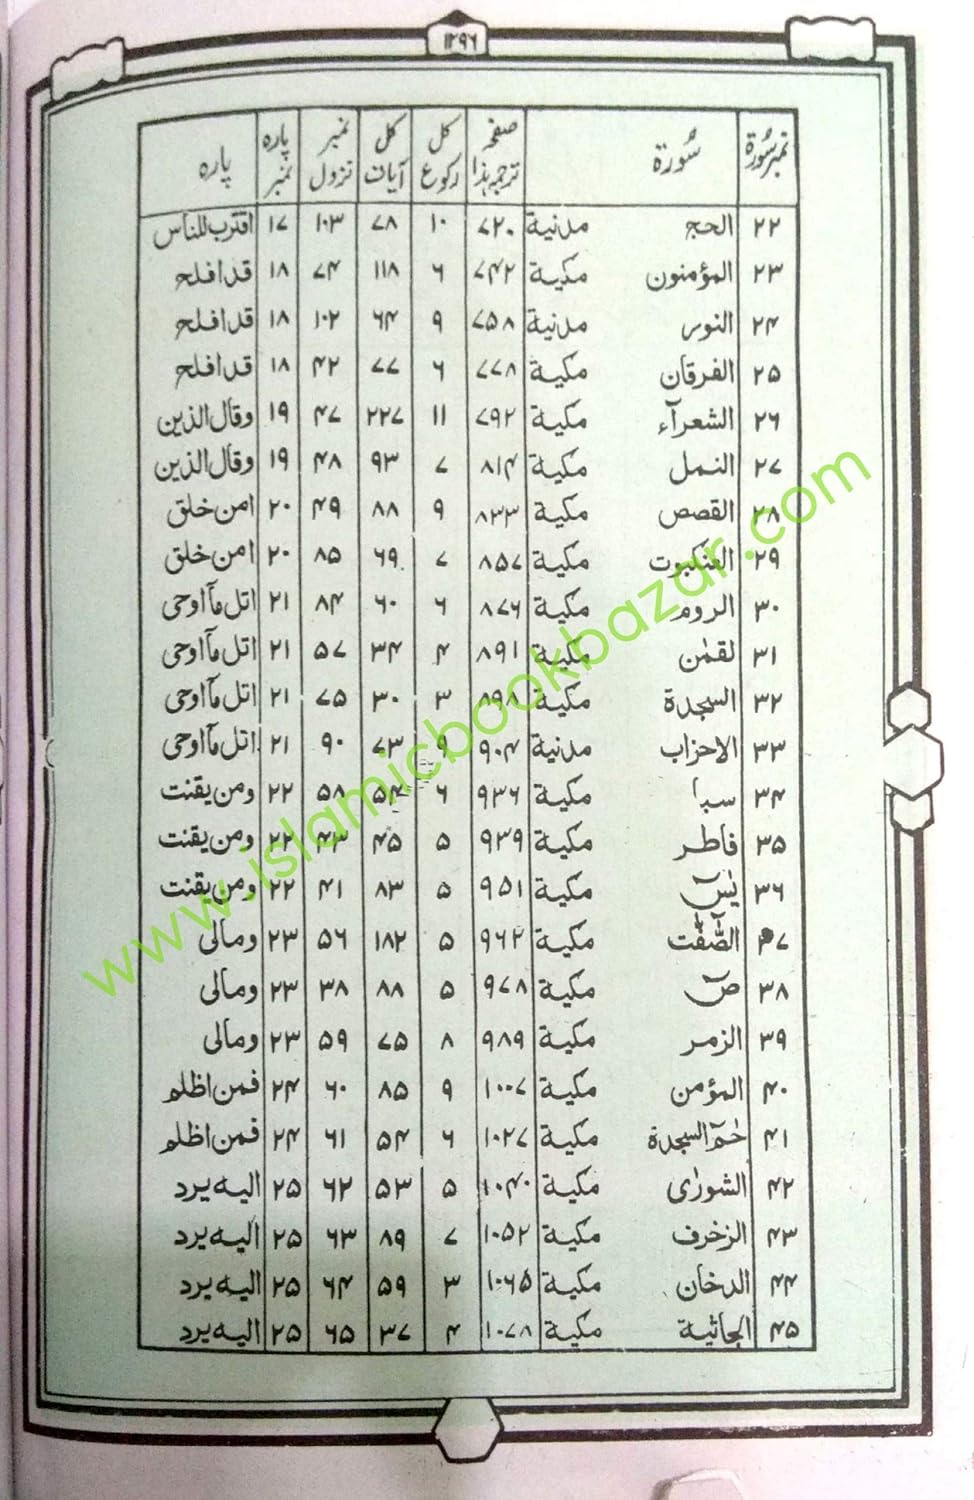 ۱۲۹۶
نمبر سورۃ سُورۃ صفحہ ترجمہ ہذا کل رکوع کل آیات نمبر نزول پارہ نمبر پارہ
۲۲ الحج مدنیة ۷۲۰ ۱۰ ۷۸ ۱۰۳ ۱۷ اقترب للناس
۲۳ المؤمنون مکیة ۷۴۲ ۶ ۱۱۸ ۷۴ ۱۸ قد افلح
۲۴ النور مدنیة ۷۵۸ ۹ ۶۴ ۱۰۲ ۱۸ قد افلح
۲۵ الفرقان مکیة ۷۷۸ ۶ ۷۷ ۴۲ ۱۸ قد افلح
۲۶ الشعرآء مکیة ۷۹۲ ۱۱ ۲۲۷ ۴۷ ۱۹ وقال الذین
۲۷ النمل مکیة ۸۱۴ ۷ ۹۳ ۴۸ ۱۹ وقال الذین
۲۸ القصص مکیة ۸۳۳ ۹ ۸۸ ۴۹ ۲۰ امن خلق
۲۹ العنکبوت مکیة ۸۵۷ ۷ ۶۹ ۸۵ ۲۰ امن خلق
۳۰ الروم مکیة ۸۷۶ ۶ ۶۰ ۸۴ ۲۱ اتل مآ اوحی
۳۱ لقمٰن مکیة ۸۹۱ ۴ ۳۴ ۵۷ ۲۱ اتل مآ اوحی
۳۲ السجدة مکیة ۸۹۸ ۳ ۳۰ ۷۵ ۲۱ اتل مآ اوحی
۳۳ الاحزاب مدنیة ۹۰۴ ۹ ۷۳ ۹۰ ۲۱ اتل مآ اوحی
۳۴ سبا مکیة ۹۳۶ ۶ ۵۴ ۵۸ ۲۲ ومن یقنت
۳۵ فاطر مکیة ۹۳۹ ۵ ۴۵ ۴۳ ۲۲ ومن یقنت
۳۶ یٰسٓ مکیة ۹۵۱ ۵ ۸۳ ۴۱ ۲۲ ومن یقنت
۳۷ الصّٰٓفّٰت مکیة ۹۶۲ ۵ ۱۸۲ ۵۶ ۲۳ ومالی
۳۸ صٓ مکیة ۹۷۸ ۵ ۸۸ ۳۸ ۲۳ ومالی
۳۹ الزمر مکیة ۹۸۹ ۸ ۷۵ ۵۹ ۲۳ ومالی
۴۰ المؤمن مکیة ۱۰۰۷ ۹ ۸۵ ۶۰ ۲۴ فمن اظلم
۴۱ حٰمٓ السجدة مکیة ۱۰۲۷ ۶ ۵۴ ۶۱ ۲۴ فمن اظلم
۴۲ الشورٰی مکیة ۱۰۴۰ ۵ ۵۳ ۶۲ ۲۵ الیه یرد
۴۳ الزخرف مکیة ۱۰۵۲ ۷ ۸۹ ۶۳ ۲۵ الیه یرد
۴۴ الدخان مکیة ۱۰۶۵ ۳ ۵۹ ۶۴ ۲۵ الیه یرد
۴۵ الجاثیة مکیة ۱۰۷۸ ۴ ۳۷ ۶۵ ۲۵ الیه یرد
www.islamicbookbazar.com